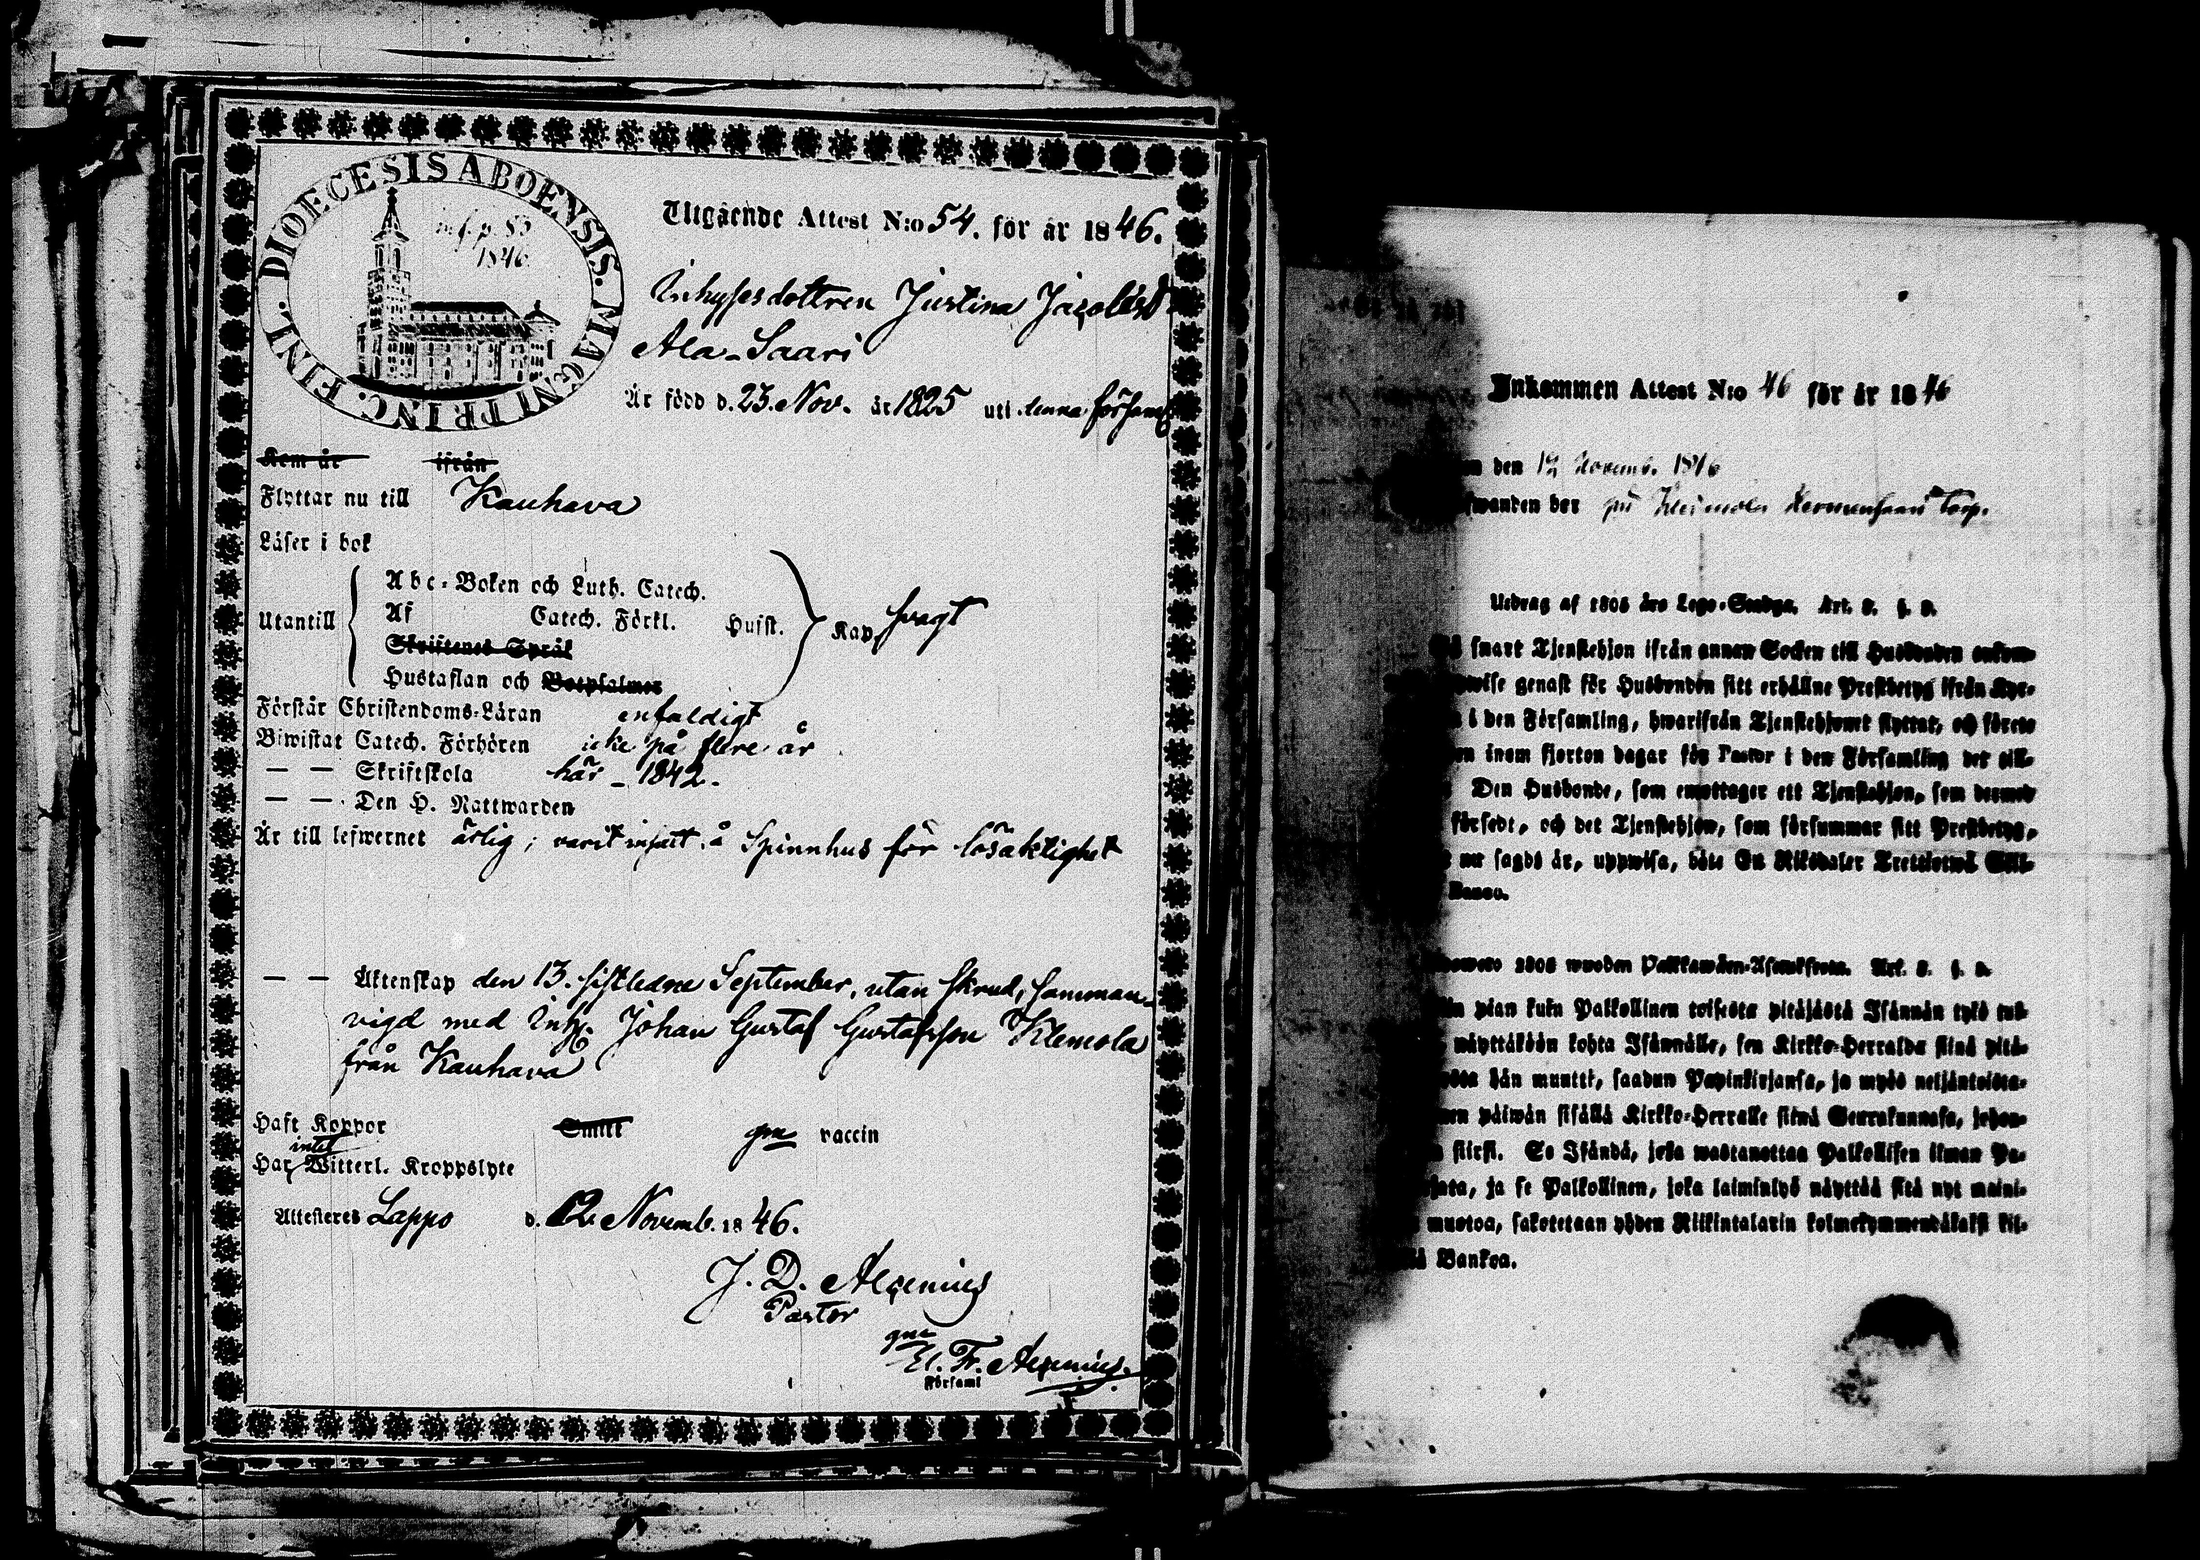 DIOECESIS ABOENSIS. MAGNI PRINC. FINL.
inf. p. 83
1846
Utgående Attest N:o 54. för år 1846.
Inhysesdottren Justina Jacobsd.
Ala-Saari
Är född d. 23. Nov. år 1825 uti denna församl.
Kom år ifrån
Flyttar nu till Kauhava
Läser i bok
Utantill
Abc-Boken och Luth. Catech.
Af Catech. Förkl. Husst. Kap. svagt
Skriftenes Språk
Hustaflan och Botpsalmer
Förstår Christendoms-Läran enfaldigt
Biwistat Catech. Förhören icke på flere år
— — Skriftskola här - 1842.
— — Den H. Nattwarden
Är till lefwernet ärlig; varit insatt å Spinnhus för lösaktighet
— — Äktenskap den 13. sistledne September, utan skrud, samman-
vigd med Inh. Johan Gustaf Gustafsson Klemola
från Kauhava
Haft Koppor Smitt gm vaccin
intet
Har Witterl. Kroppslyte
Attesteres Lappo d. 12 Novemb. 1846.
J. D. Alcenius
Pastor
gm
El. Fr. Alcenius.
Församl
Inkommen Attest N:o 46 för år 1846
den 12 Novemb. 1846
Klemola Hermansaari Torp.
Utdrag af 1805 års Lego-Stadga. Art. 8. §. 9.
snart Tjenstehjon ifrån annan Socken till Husbonden ankom-
genast för Husbonden sitt erhållne Prestbetyg ifrån Kyr-
i den Församling, hwarifrån Tjenstehjonet flyttat, och förete
inom fjorton dagar för Pastor i den Församling det till-
Den Husbonde, som emottager ett Tjenstehjon, som dermed
försedt, och det Tjenstehjon, som försummar sitt Prestbetyg,
nu sagdt är, uppwisa, böte En Riksdaler Trettiotwå Skil-
Banco.
1805 wuoden Palkkawäen-Asetuksesta. Art. 8. §. 9.
pian kuin Palkollinen toisesta pitäjästä Isännän tykö tul-
näyttäköön kohta Isännälle, sen Kirkko-Herralda siinä pitä-
hän muutti, saadun Papinkirjansa, ja myös neljäntoista-
päiwän sisällä Kirkko-Herralle siinä Seurakunnasa, johon-
siirsi. Se Isändä, joka wastanottaa Palkollisen ilman Pa-
ja se Palkollinen, joka laiminlyö näyttää sitä nyt maini-
muotoa, sakotetaan yhden Riikintalarin kolmekymmendäkaksi kil-
Bankoa.